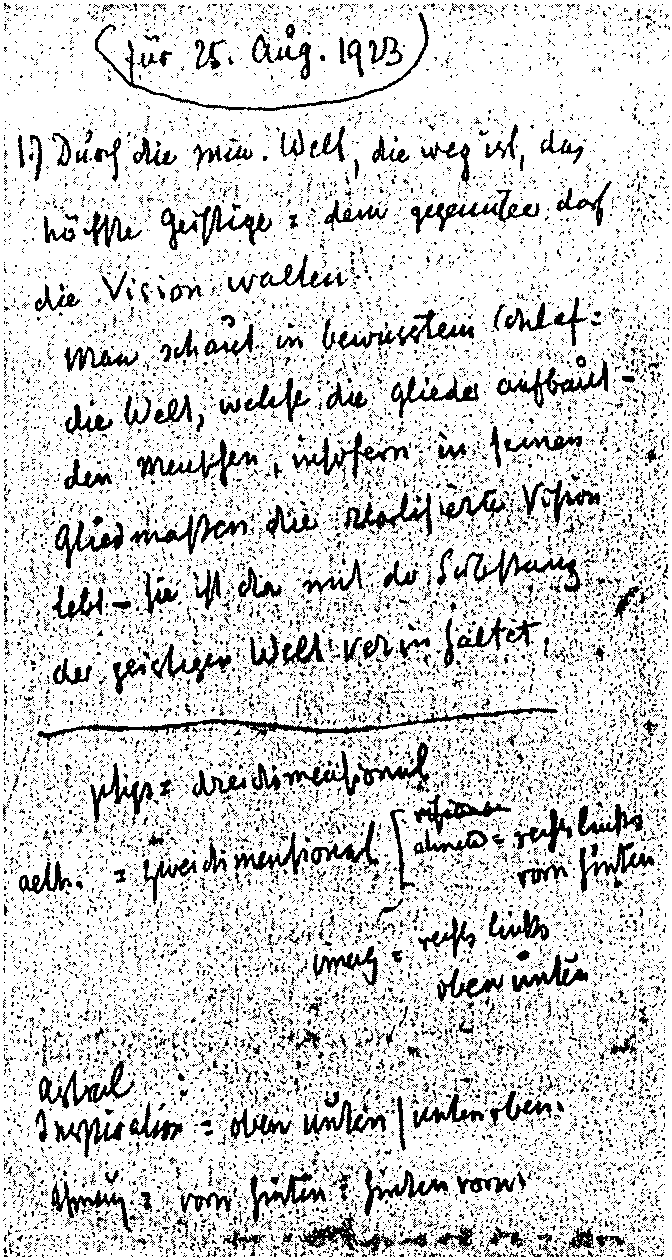 für 25. Aug. 1923
1.) Durch die min. Welt, die weg ist, das
höchste Geistige = dem gegenüber darf
die Vision walten
Man schaut in bewusstem Schlaf =
die Welt, welche die Glieder aufbaut -
den Menschen, insofern in seinen
Gliedmaßen die realisierte Vision
lebt - sie ist da mit der Schöpfung
der geistigen Welt
phys = dreidimensional
aeth. = zweidimensional [
ahnend = rechts links
vorn hinten
imag = rechts links
oben unten
astral
Inspiration = oben unten / unten oben.
Ahnung = vorn hinten = hinten vorn